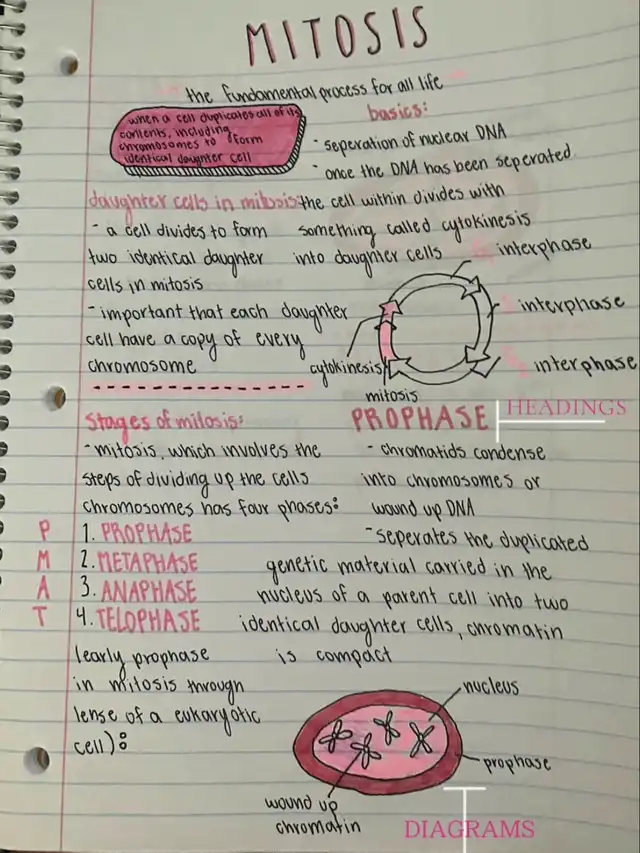 MITOSIS
the fundamental process for all life
when a cell duplicates all of its
contents, including
chromosomes to form
identical daughter cell
basics:
- seperation of nuclear DNA
- once the DNA has been seperated
the cell within divides with
something called cytokinesis
into daughter cells
daughter cells in mitosis:
- a cell divides to form
two identical daughter
cells in mitosis
- important that each daughter
cell have a copy of every
chromosome
interphase
interphase
interphase
cytokinesis
mitosis
Stages of mitosis:
- mitosis, which involves the
steps of dividing up the cells
chromosomes has four phases:
P 1. PROPHASE
M 2. METAPHASE
A 3. ANAPHASE
T 4. TELOPHASE
PROPHASE
HEADINGS
- chromatids condense
into chromosomes or
wound up DNA
- seperates the duplicated
genetic material carried in the
nucleus of a parent cell into two
identical daughter cells, chromatin
is compact
(early prophase
in mitosis through
lense of a eukaryotic
cell):
nucleus
prophase
wound up
chromatin
DIAGRAMS